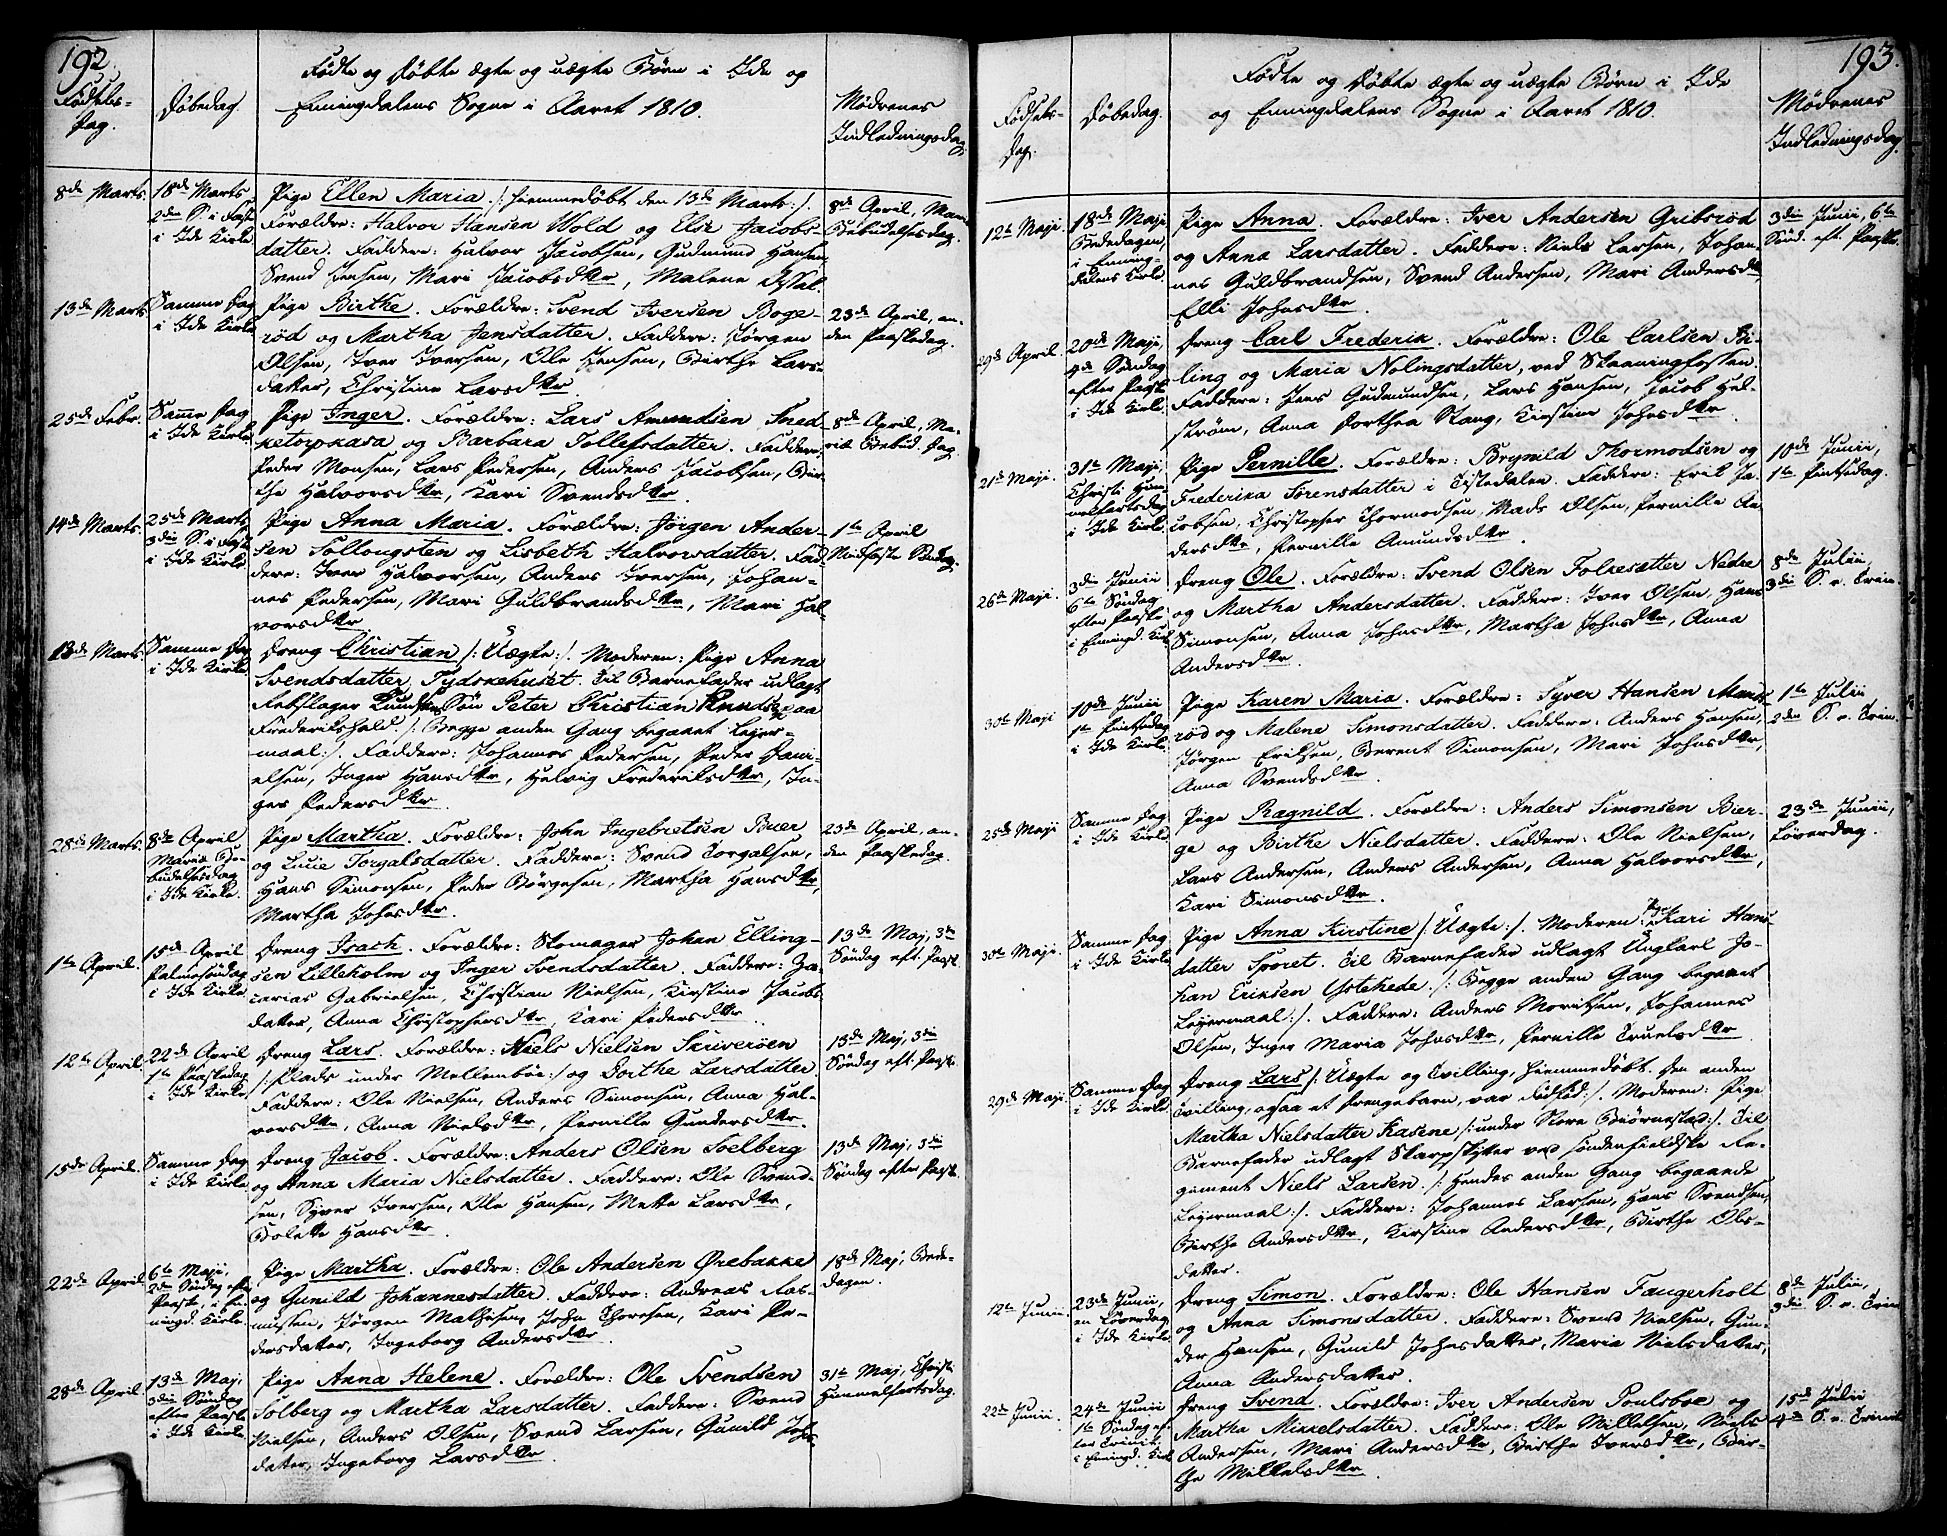 192.
Fødsels-
Dag.
Døbedag.
Fødte og Døbte ægte og uægte Børn i Ide og
Enningdalens Sogne i Aaret 1810.
Mødrenes
Indledningsdag.
8de Marts.
18de Marts
2den S. i Faste
i Ide Kirke
Pige Ellen Maria /: hiemmedøbt den 13de Marts :/.
Forældre: Halvor Hansen Wold og Else Jacobs-
datter. Faddere: Halvor Jacobsen, Gudmund Hansen,
Svend Jensen, Mari Jacobsdtr, Malene
8de April, Mariæ
Bebudelsesdag.
13de Marts
Samme Dag
i Ide Kirke
Pige Birthe. Forældre: Svend Iversen Boge-
rød og Martha Jensdatter. Faddere: Jørgen
Olsen, Iver Iversen, Ole Jensen, Birthe Lars-
datter, Christine Larsdtr.
23de April, an-
den Paaskedag.
25de Febr.
Samme Dag
i Ide Kirke.
Pige Inger. Forældre: Lars Amundsen Sned-
ketorpkasa og Barbara Tollefsdatter. Faddere:
Peder Monsen, Lars Pedersen, Anders Jacobsen, Bir-
the Halvorsdtr, Kari Svendsdtr.
8de April, Ma-
riæ Bebud. Dag
14de Marts.
25de Marts,
3die S. i Faste
i Ide Kirke
Pige Anna Maria. Forældre: Jørgen Ander-
sen Sollougsten og Lisbeth Halvorsdatter. Fad-
dere: Iver Halvorsen, Anders Iversen, Johan-
nes Pedersen, Mari Guldbrandsdtr, Mari Hal-
vorsdtr
1ste April
Midfaste Søndag.
Marts.
Samme Dag
i Ide Kirke
Dreng Christian /: Uægte :/. Moderen: Pige Anna
Svendsdatter Tydskehuset. Til Barnefader udlagt
Rebslager Søn Peter Christian Knudsen paa
Frederikshald. /: Begge anden Gang begaaet Leier-
maal :/. Faddere: Johannes Pedersen, Peder Dani-
elsen, Inger Hansdtr, Helvig Frederiksdtr, In-
ger Pedersdtr.
28de Marts.
8de April
Mariæ Be-
budelsesdag
i Ide Kirke.
Pige Martha. Forældre: John Ingebretsen Buer
og Lucie Torgalsdatter. Faddere: Svend Torgalsen,
Hans Simonsen, Peder Børgesen, Martha Hansdtr,
Martha Johnsdtr.
23de April, an-
den Paaskedag.
1ste April.
15de April
Palmesøndag
i Ide Kirke
Dreng Isach. Forældre: Skomager Johan Elling-
sen Lilleholm og Inger Svendsdatter. Faddere: Za-
carias Gabrielsen, Christian Nielsen, Kirstine Jacobs-
datter, Anna Christophersdtr, Kari Pedersdtr
13de Maj, 3die
Søndag eft. Paask.
12te April
22de April
1ste Paaskedag
i Ide Kirke
Dreng Lars. Forældre: Niels Nielsen Skriversen
/: Plads under Mellembøe :/ og Dorthe Larsdatter
Faddere: Ole Nielsen, Anders Simonsen, Anna Hal-
vorsdtr, Anna Nielsdtr, Pernille Gundersdtr.
13de Maj, 3die
Søndag eft. Paaske
15de April.
Samme Dag
i Ide Kirke.
Dreng Jacob. Forældre: Anders Olsen Soelberg
og Anna Maria Nielsdatter. Faddere: Ole Svend-
sen, Syver Iversen, Ole Hansen, Mette Larsdtr,
Bolette Hansdtr.
13de Maj, 3die
Søndag efter Paask.
22de April.
6te Maji,
2den Søndag efter
Paaske, i En-
ningd. Kirke.
Pige Martha. Forældre: Ole Andersen Ørebakke
og Gunild Johannesdatter. Faddere: Andreas Ras-
mussen, Jørgen Mathisen, John Thoresen, Kari Pe-
dersdatter, Ingeborg Andersdtr.
18de Maj, Bede-
dagen.
28de April.
13de Maj,
3die Søndag
efter Paaske
i Ide Kirke.
Pige Anna Helene. Forældre: Ole Svendsen
Solberg og Martha Larsdatter. Faddere: Svend
Nielsen, Anders Olsen, Svend Larsen, Gunild Johns-
datter, Ingeborg Larsdtr.
31te Maj, Christi
Himmelfartsdag.
193.
Fødsels-
Dag.
Døbedag.
Fødte og Døbte ægte og uægte Børn i Ide
og Enningdalens Sogne i Aaret 1810.
Mødrenes
Indledningsdag.
12te Maji.
18de Maji
Bededagen,
i Enning-
dalens Kirke.
Pige Anna. Forældre: Iver Andersen Gribsrød
og Anna Larsdatter. Faddere: Niels Larsen, Johan-
nes Guldbrandsen, Svend Andersen, Mari Andersdtr,
Elli Johnsdtr.
3die Junii, 6te
Sønd. eft. Paaske.
29de April.
20de Maji,
4de Søndag
efter Paaske
i Ide Kirke.
Dreng Carl Frederik. Forældre: Ole Carlsen Bi-
ling og Maria Nolingsdatter, ved Skaaningfossen.
Faddere: Jens Gudmundsen, Lars Hansen, Jacob Hel-
strøm, Anna Dorthea Stang, Kirstine Johnsdtr.
21de Maji.
31te Maji,
Christi Him-
melfartsdag
i Ide Kirke.
Pige Pernille. Forældre: Brynild Thormodsen og
Frederika Sørensdatter i Tistedalen. Faddere: Erik Ja-
cobsen, Christopher Thormodsen, Mads Olsen, Pernille An-
dersdtr, Pernille Amundsdtr.
10de Junii,
1ste Pintsedag.
26de Maji.
3die Junii
6te Søndag
efter Paaske
i Enningd. Kirke
Dreng Ole. Forældre: Svend Olsen Folkesætter Nedre
og Martha Andersdatter. Faddere: Iver Olsen, Hans
Simonsen, Anna Johnsdtr, Martha Johnsdtr, Anna
Andersdtr.
8de Julii,
3die S. e. Trin.
30te Maji
10de Junii
1ste Pintsedag
i Ide Kirke.
Pige Karen Maria. Forældre: Syver Hansen Mans-
rød og Malene Simonsdatter. Faddere: Anders Hansen,
Jørgen Eriksen, Berent Simonsen, Mari Johnsdtr,
Anna Svendsdtr.
1ste Julii
2den S. e. Trin.
25de Maji
Samme Dag
i Ide Kirke.
Pige Ragnild. Forældre: Anders Simonsen Bier-
ge og Birthe Nielsdatter. Faddere: Ole Nielsen,
Lars Andersen, Anders Andersen, Anna Halvorsdtr,
Kari Simonsdtr.
23de Junii,
Løverdag.
30te Maji.
Samme Dag
i Ide Kirke
Pige Anna Kirstine /: Uægte :/. Moderen: Pige Kari Hans-
datter Sporet. Til Barnefader udlagt Ungkarl Jo-
han Eriksen Ystehede. /: Begge anden Gang begaaet
Leyermaal :/. Faddere: Anders Moritsen, Johannes
Olsen, Inger Maria Johnsdtr, Pernille Truelsdtr.
29de Maji
Samme Dag
i Ide Kirke.
Dreng Lars /: Uægte og Tvilling, hiemmedøbt. Den anden
Tvilling, ogsaa et Drengebarn, var dødfød :/. Moderen: Pige
Martha Nielsdatter Kasene /: under Store Biørnestad :/. Til
Barnefader udlagt Skarpskytter ved søndenfieldske Re-
giment Niels Larsen. /: Hendes anden Gang begaaede
Leyermaal :/. Faddere: Johannes Larsen, Hans Svendsen,
Birthe Andersdtr, Kirstine Andersdtr, Birthe Ols-
datter.
12te Junii.
23de Junii,
en Løverdag
i Ide Kirke
Dreng Simon. Forældre: Ole Hansen Faugerholt
og Anna Simonsdatter. Faddere: Svend Nielsen, Gun-
der Hansen, Gunild Johnsdatter, Maria Nielsdatter,
Anna Andersdatter.
8de Julii,
3die S. e. Trin
22de Junii.
24de Junii
1ste Søndag ef-
ter Trinit.
i Enningd. Kirke
Dreng Svend. Forældre: Iver Andersen Poulsboe og
Martha Mikkelsdatter. Faddere: Ole Mikkelsen, Niels
Andersen, Mari Andersdtr, Birthe Iversdtr, Bir-
the Mikkelsdtr.
15de Julii
4de S. e. Trinit.